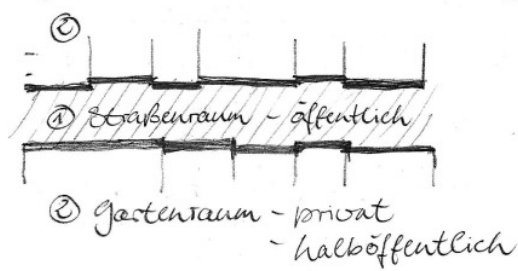 ②
① Straßenraum - öffentlich
② Gartenraum - privat
- halböffentlich